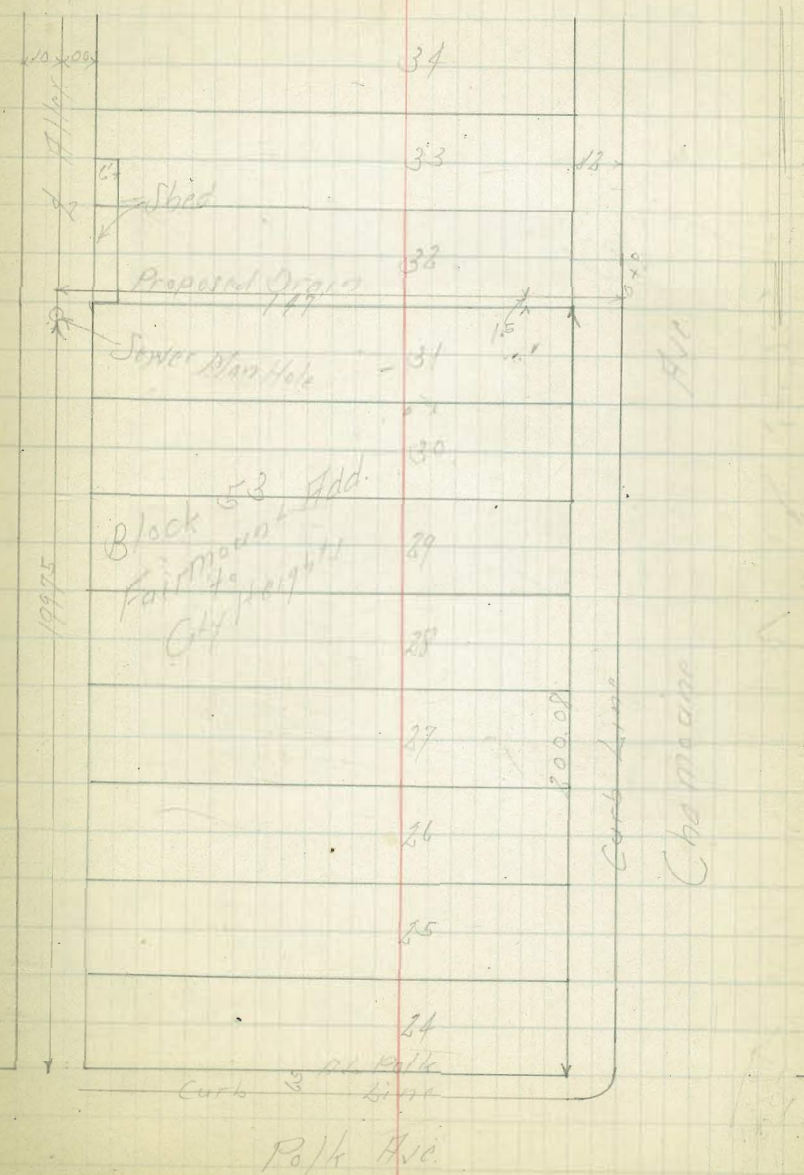 34
Alley
33
12
Shed
32
Proposed Drain
147
1.5
Sewer Man Hole
31
Ave
30
Block 53
Fairmount Add.
to
City Heights
29
199.75
28
200.08
Curb Line
Chamoune
27
26
25
24
Curb Line
Polk Ave.